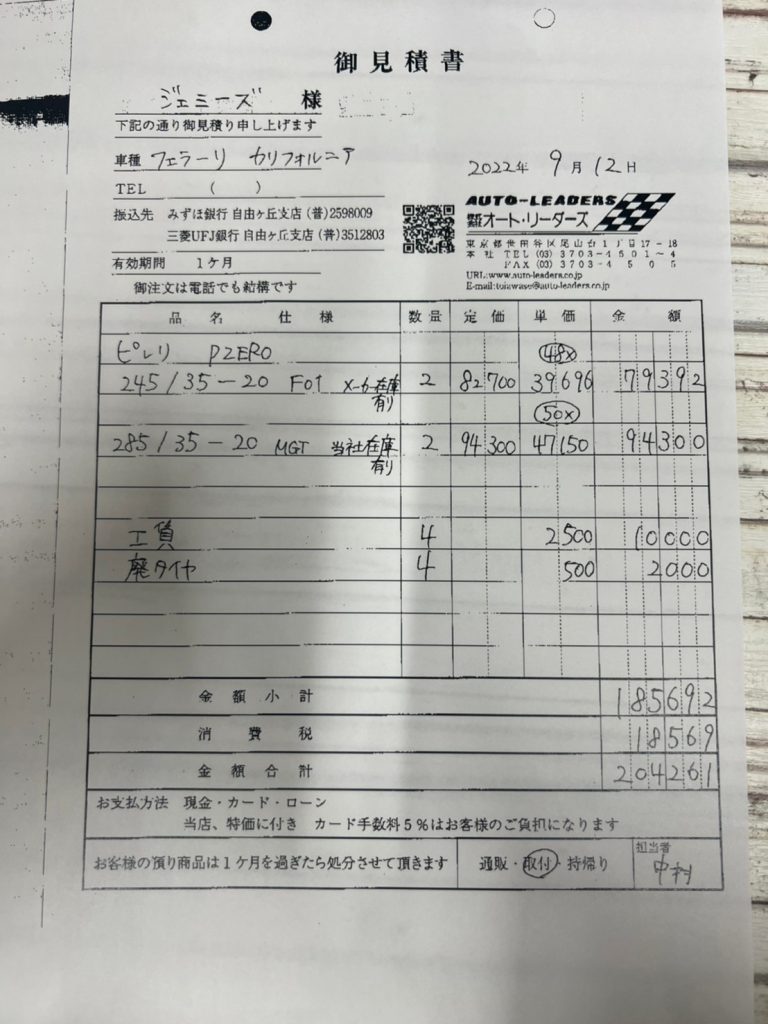 御見積書
ジェミーズ 様
下記の通り御見積り申し上げます
車種 フェラーリ カリフォルニア
2022年 9月12日
TEL ( )
振込先 みずほ銀行 自由ヶ丘支店 (普)2598009
三菱UFJ銀行 自由ヶ丘支店 (普)3512803
有効期間 1ケ月
御注文は電話でも結構です
AUTO-LEADERS
株式会社オート・リーダーズ
東京都世田谷区尾山台1丁目17-18
本社 TEL(03)3703-4501~4
FAX(03)3703-4505
URL:www.auto-leaders.co.jp
E-mail:toiawase@auto-leaders.co.jp
品名 仕様 数量 定価 単価 金額
ピレリ PZERO 48%
245/35-20 F01 メーカー在庫有り 2 82700 39696 79392
50%
285/35-20 MGT 当社在庫有り 2 94300 47150 94300
工賃 4 2500 10000
廃タイヤ 4 500 2000
金額小計 185692
消費税 18569
金額合計 204261
お支払方法 現金・カード・ローン
当店、特価に付き カード手数料5%はお客様のご負担になります
お客様の預り商品は1ケ月を過ぎたら処分させて頂きます 通販・取付・持帰り 担当者
中村